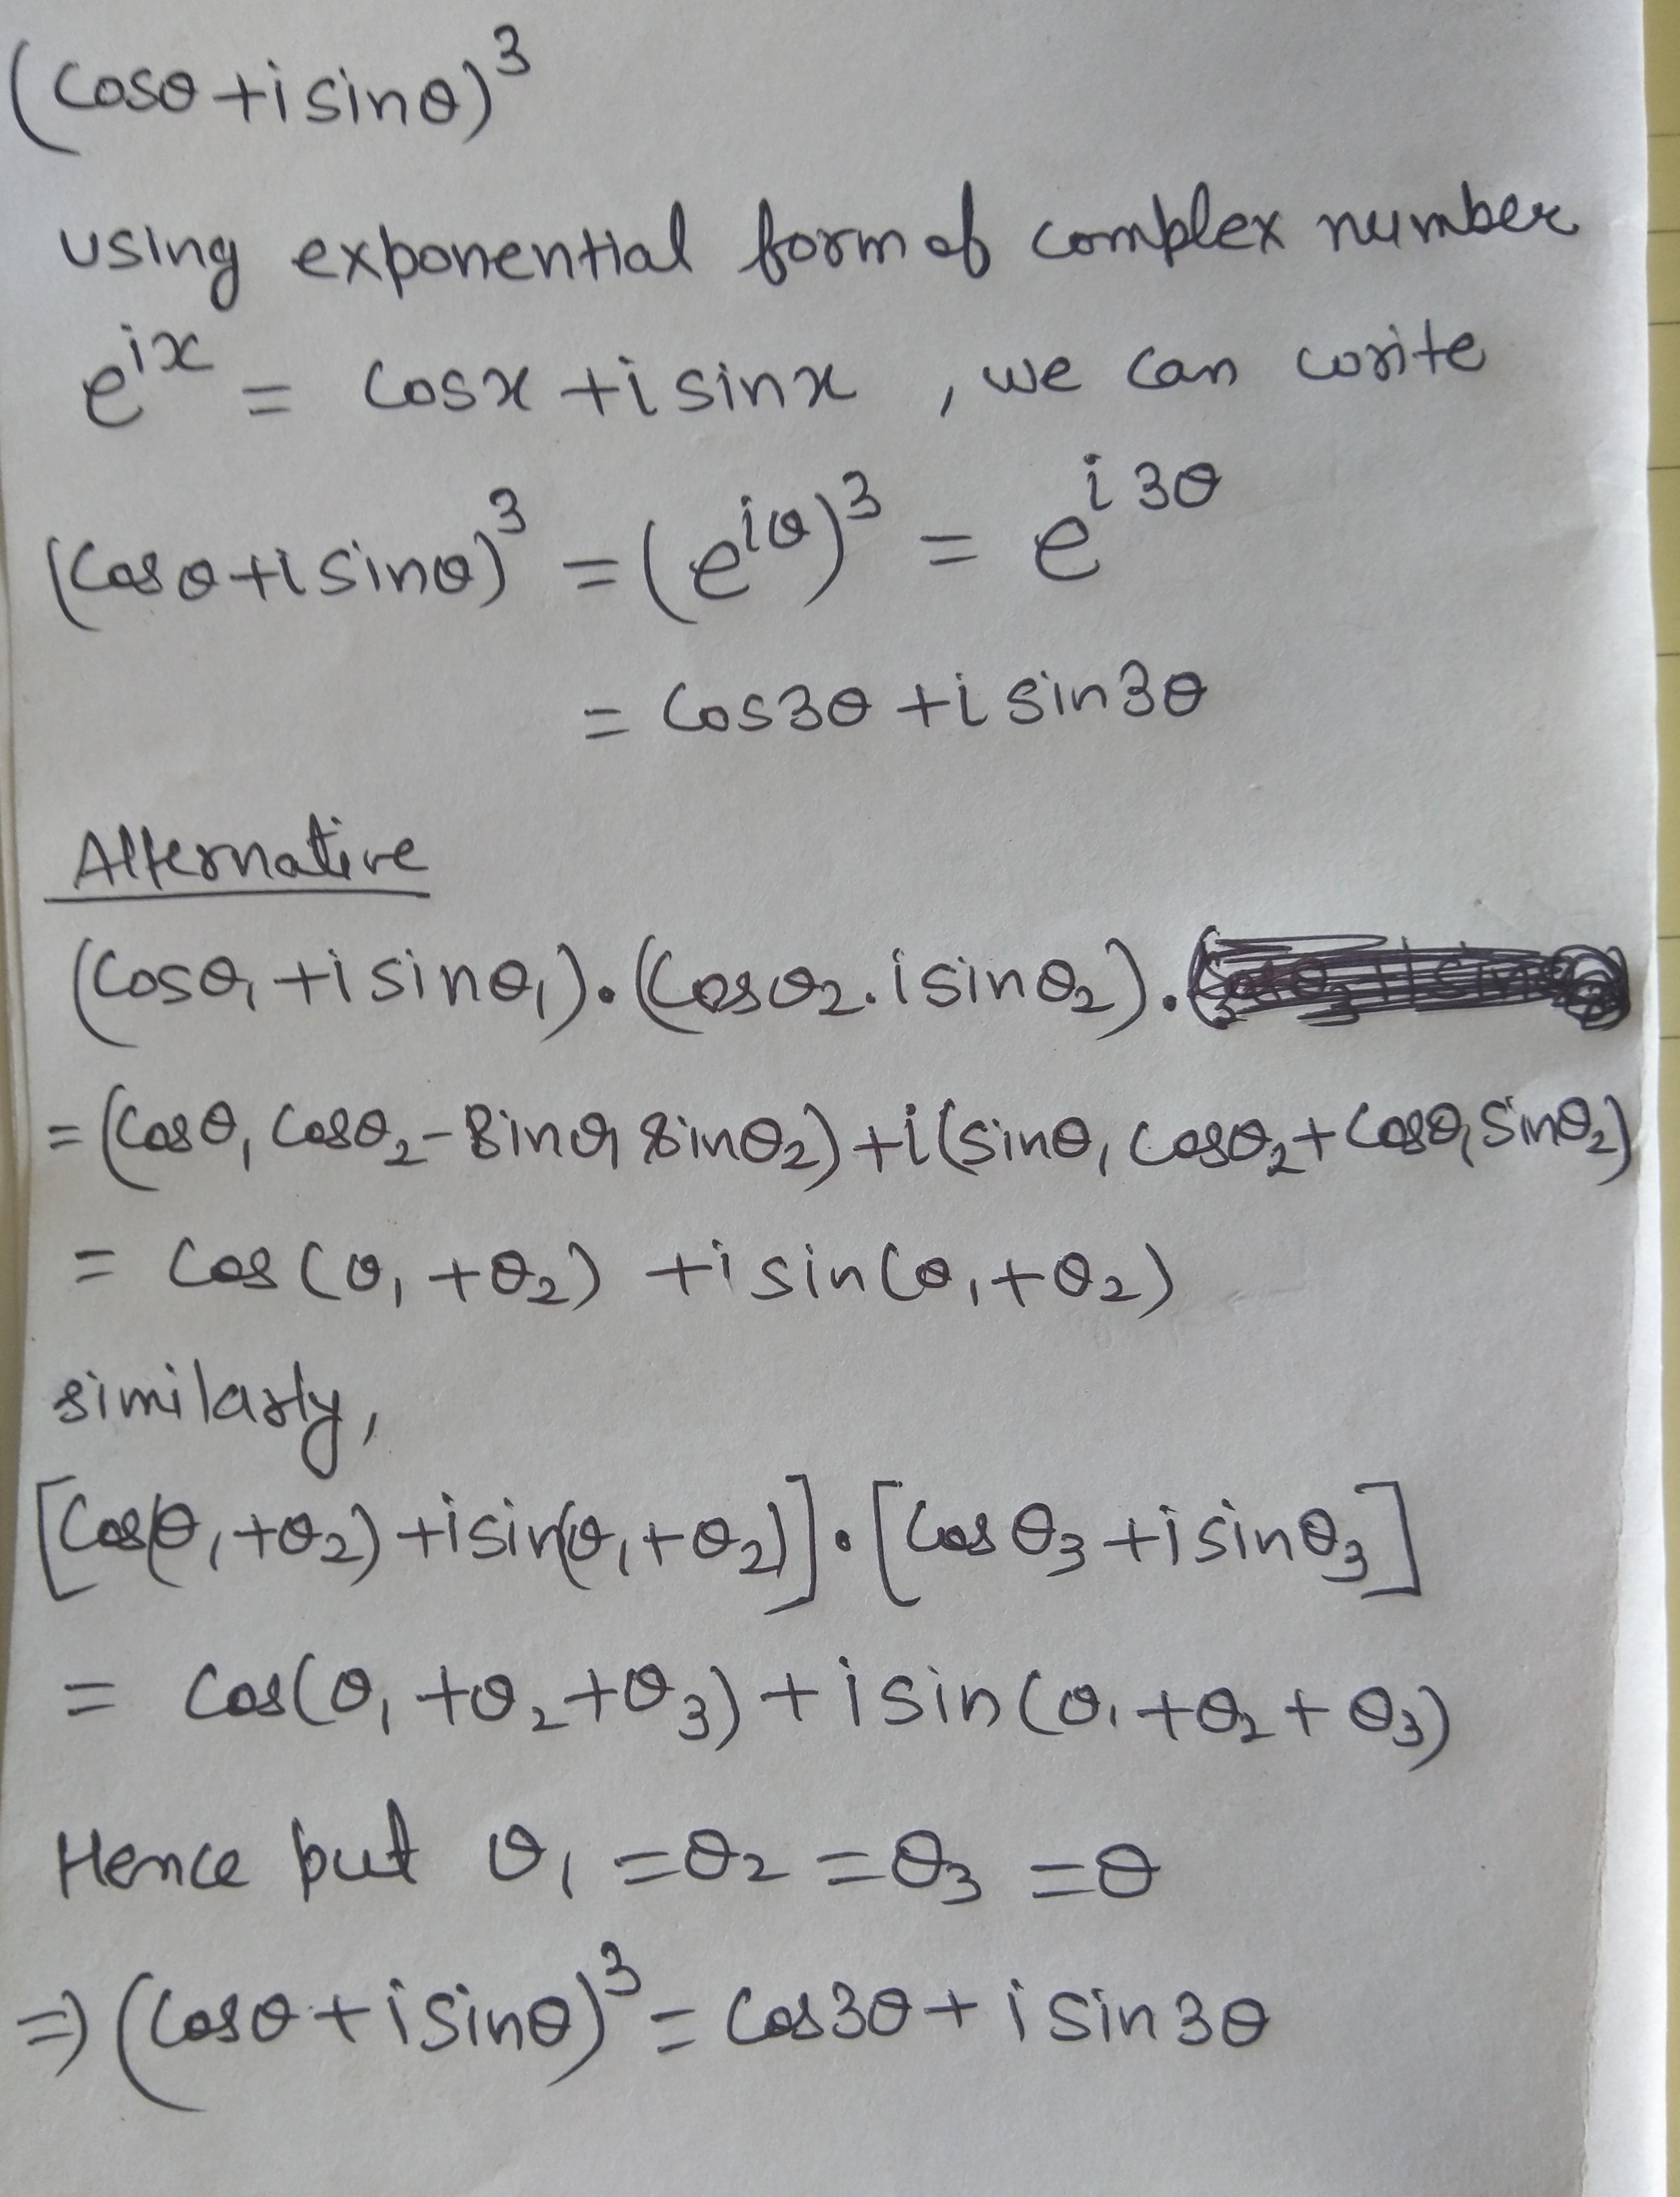 (cosθ+isinθ)³
using exponential form of complex number
e^{ix} = cosx +isinx , we can write
(cosθ+isinθ)³ = (e^{iθ})³ = e^{i3θ}
= cos3θ +i sin3θ
Alternative
(cosθ₁ +isinθ₁).(cosθ₂.isinθ₂).
= (cosθ₁ cosθ₂ - sinθ₁ sinθ₂) +i(sinθ₁ cosθ₂ + cosθ₁ sinθ₂)
= cos(θ₁ +θ₂) +isin(θ₁+θ₂)
similarly,
[cos(θ₁+θ₂)+isin(θ₁+θ₂)].[cosθ₃ +isinθ₃]
= cos(θ₁ +θ₂+θ₃) + i sin(θ₁+θ₂+θ₃)
Hence put θ₁ =θ₂ =θ₃ =θ
⇒ (cosθ+isinθ)³ = cos3θ + i sin3θ